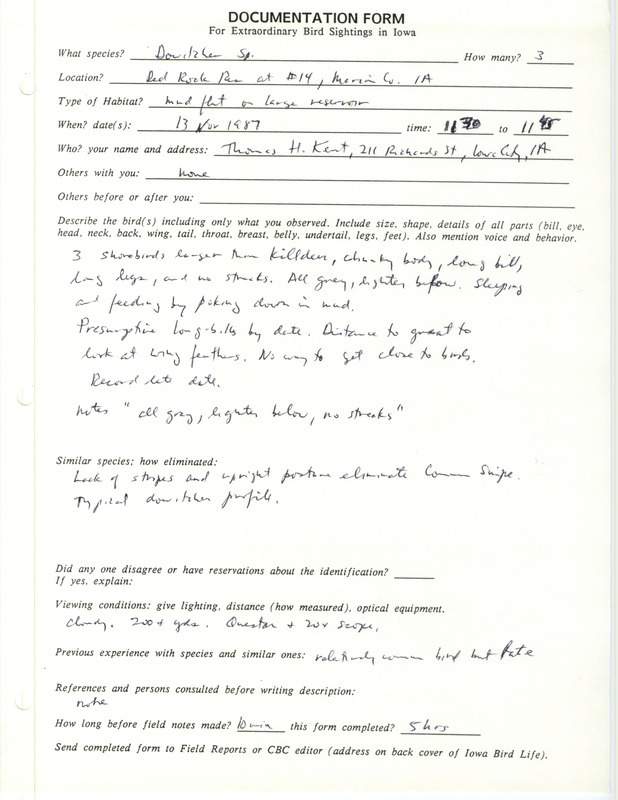 DOCUMENTATION FORM
For Extraordinary Bird Sightings in Iowa
What species? Dowitcher Sp. How many? 3
Location? Red Rock Res at #14, Marion Co. IA
Type of Habitat? mud flat on large reservoir
When? date(s): 13 Nov 1987 time: 1130 to 1145
Who? your name and address: Thomas H. Kent, 211 Richards St, Iowa City, IA
Others with you: none
Others before or after you:
Describe the bird(s) including only what you observed. Include size, shape, details of all parts (bill, eye,
head, neck, back, wing, tail, throat, breast, belly, undertail, legs, feet). Also mention voice and behavior.
3 shorebirds larger than Killdeer, chunky body, long bill,
long legs, and no streaks. All gray, lighter below. Sleeping
and feeding by poking down in mud.
Presumptive Long-bills by date. Distance to great to
look at wing feathers. No way to get close to birds.
Record late date.
notes "all gray, lighter below, no streaks"
Similar species; how eliminated:
Lack of stripes and upright posture eliminate Common Snipe.
Typical dowitcher profile.
Did any one disagree or have reservations about the identification?
If yes, explain:
Viewing conditions: give lighting, distance (how measured), optical equipment.
cloudy. 200+ yds. Questar + 20x scope,
Previous experience with species and similar ones: relatively common bird but late
References and persons consulted before writing description:
none
How long before field notes made? 10 min this form completed? 5 hrs
Send completed form to Field Reports or CBC editor (address on back cover of Iowa Bird Life).